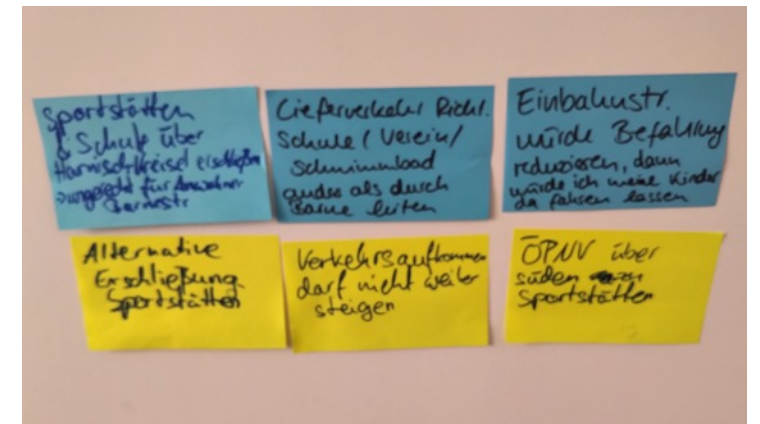 Sportstätten
& Schule über
Harnischkreisel erschließen
→ ungerecht für Anwohner
Barnestr
Lieferverkehr Richt.
Schule / Verein /
Schwimmbad
anders als durch
Barne leiten
Einbahnstr.
würde Befahrung
reduzieren, dann
würde ich meine Kinder
da fahren lassen
Alternative
Erschließung
Sportstätten
Verkehrsaufkommen
darf nicht weiter
steigen
ÖPNV über
süden
Sportstätten